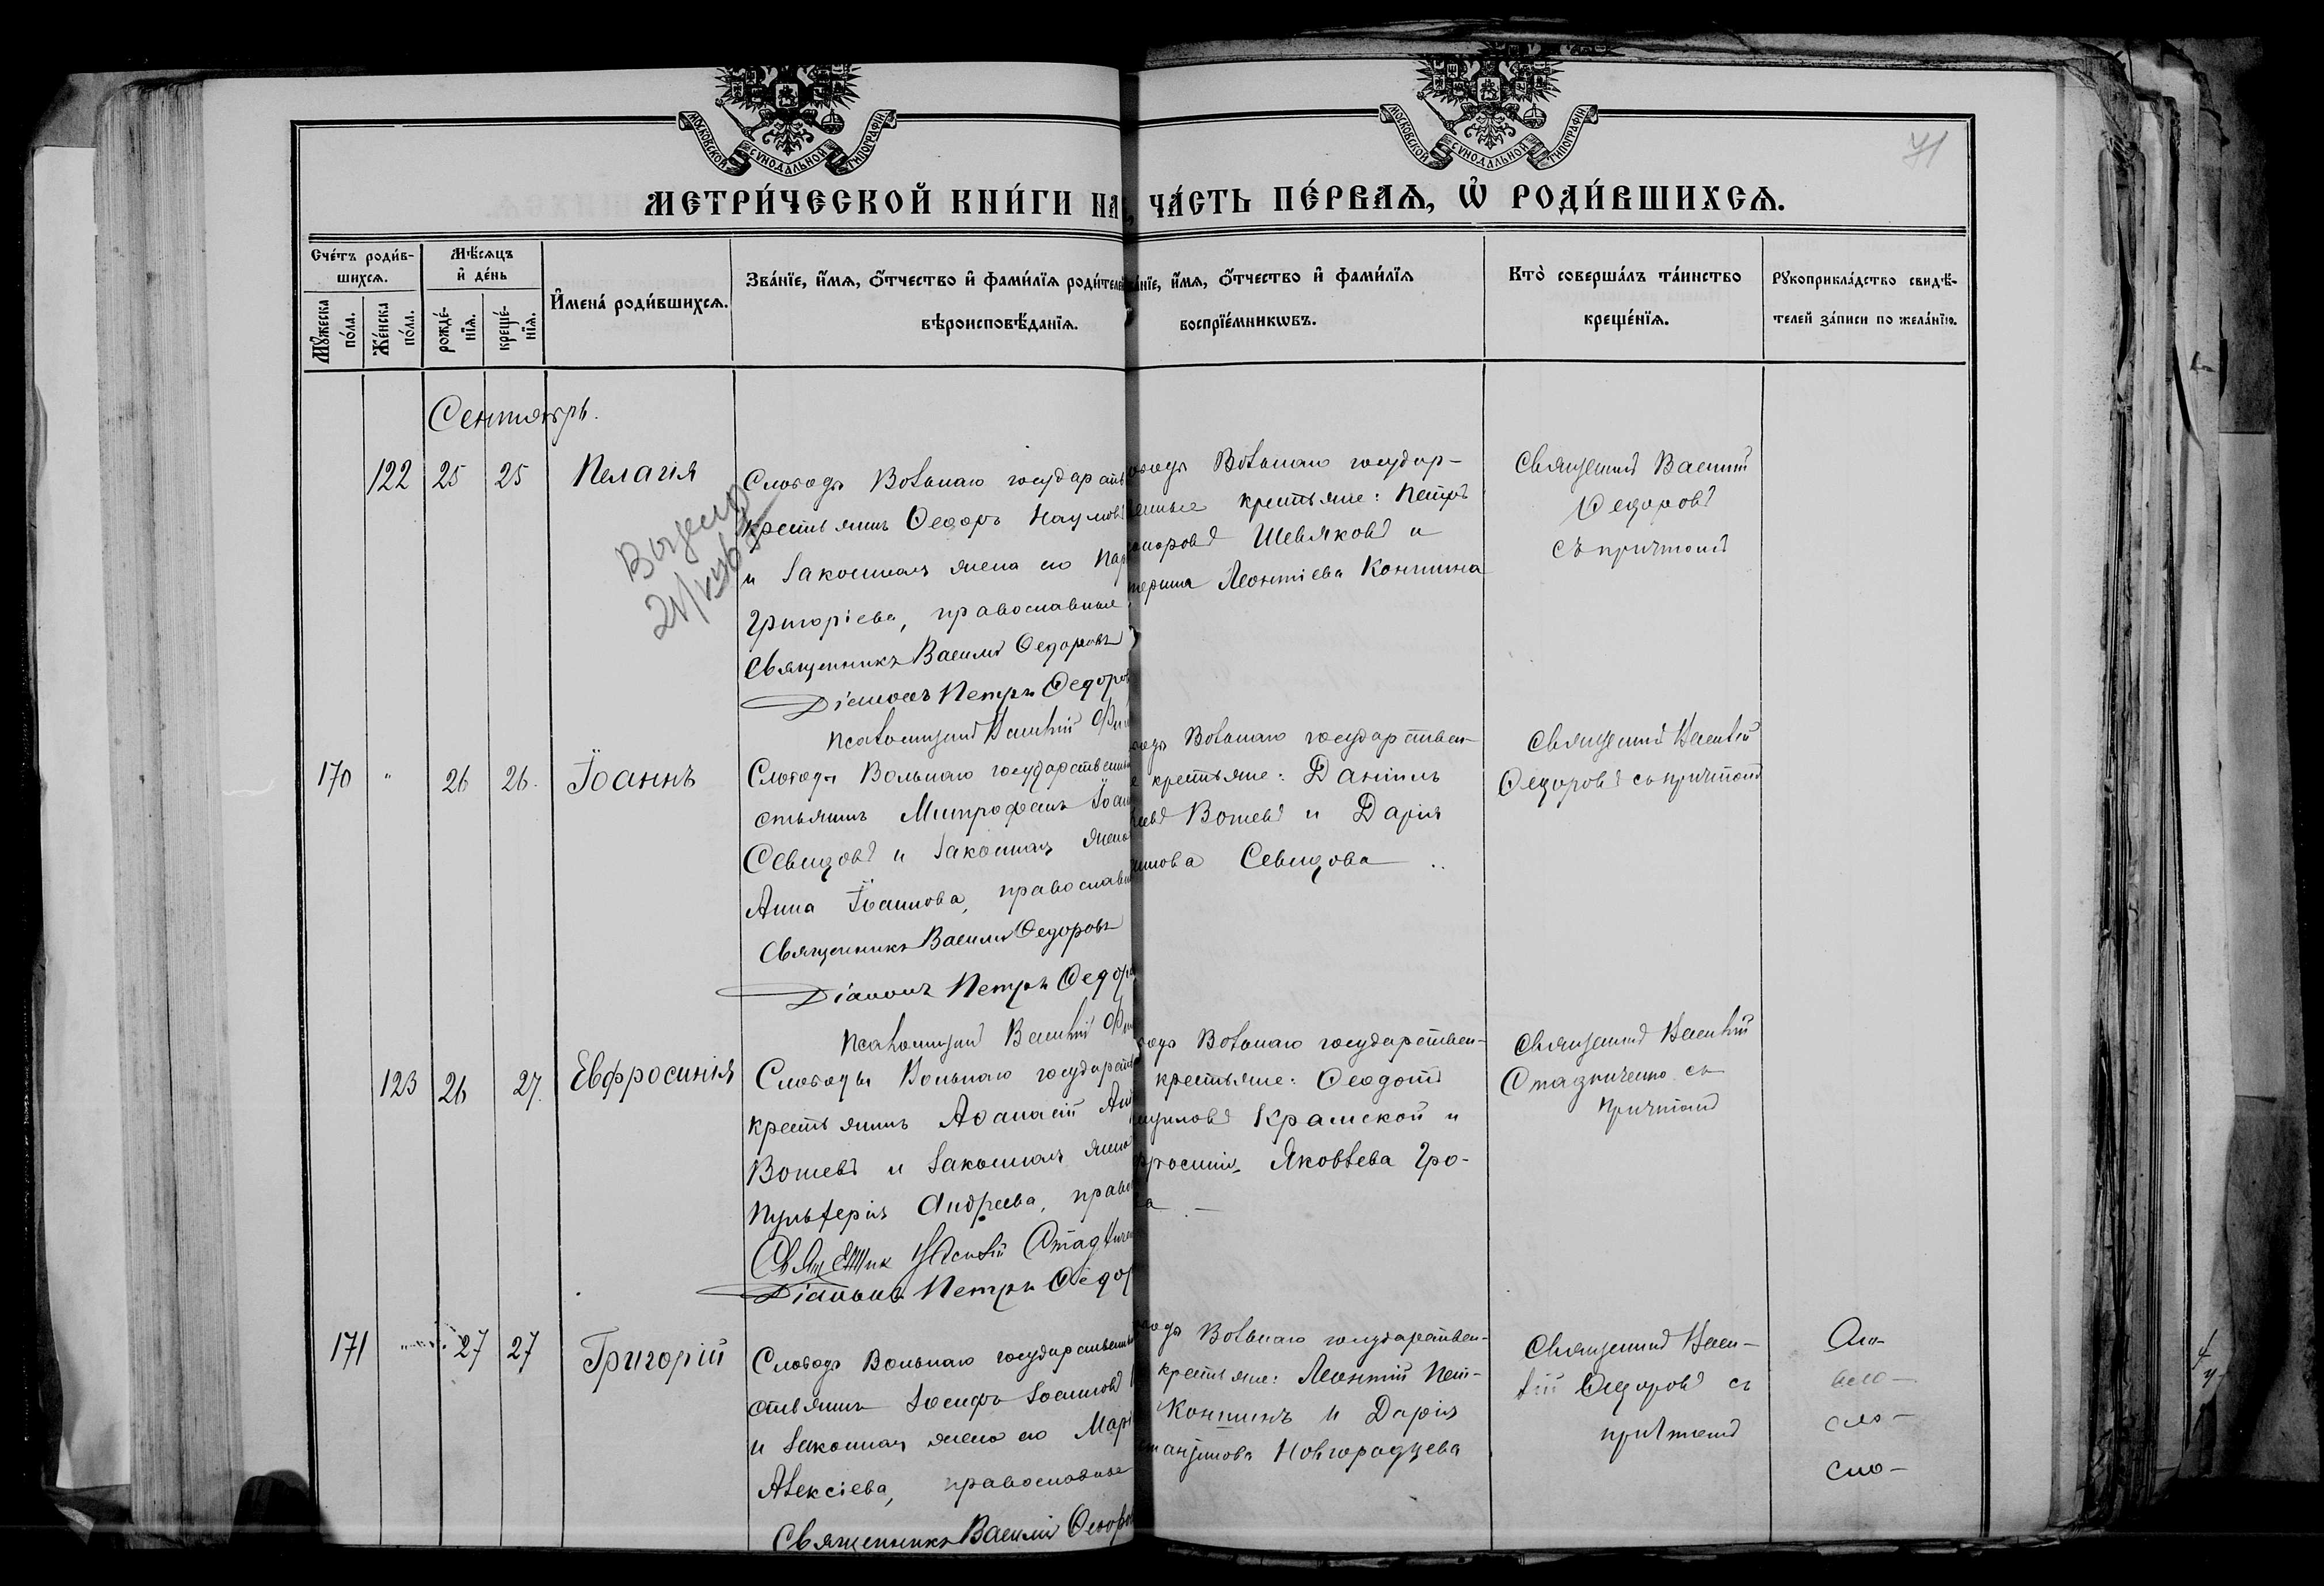 МОСКОВСКОЙ СѴНОДАЛЬНОЙ ТИПОГРАФІИ
МОСКОВСКОЙ СѴНОДАЛЬНОЙ ТИПОГРАФІИ
71
МЕТРИ́ЧЕСКОЙ КНИ́ГИ НА
ЧА́СТЬ ПЕ́РВАѦ, Ѡ҆ РОДИ́ВШИХСѦ.
Сче́тъ роди́в-
шихсѧ.
Мѣ́сѧцъ
и҆ де́нь
Мꙋ́жеска
по́ла.
Же́нска
по́ла.
рожде́-
нїѧ.
креще́-
нїѧ.
И҆мена̀ роди́вшихсѧ.
Зва́нїе, и҆́мѧ, ѻ҆́тчество и҆ фами́лїѧ роди́телей
вѣроисповѣ́данїѧ.
и҆́мѧ, ѻ҆́тчество и҆ фами́лїѧ
воспрїе́мникωвъ.
Кто̀ соверша́лъ та́инство
креще́нїѧ.
Рꙋкоприкла́дство свидѣ́-
телей за́писи по жела́нїю.
Сентябрь.
122 25 25 Пелагія
Слободы Вольнаго государств
крестьянинъ Ѳеодоръ Наумовъ
и законная жена его Пар
Григоріева, православные
Священникъ Василій Ѳедоровъ
Діаконъ Петръ Ѳедоров
Псаломщикъ Василій
Вольнаго государ-
крестьяне: Петръ
Шевляковъ и
Леонтіева Коншина
Священникъ Василій
Ѳедоровъ
съ причтомъ
170 " 26 26. Іоаннъ
Слободы Вольнаго государственны
стьянинъ Митрофанъ Іоан
Севидовъ и законная жена
Анна Іоаннова, православн
Священникъ Василій Ѳедоровъ
Діаконъ Петръ Ѳедор
Псаломщикъ Василій
Вольнаго государствен-
крестьяне: Даніилъ
Вотевъ и Дарія
Севидова
Священникъ Василій
Ѳедоровъ съ причтомъ
123 26 27. Евфросинія
Слободы Вольнаго государств
крестьянинъ Аѳанасій Ан
Вотевъ и законная жена
Пульхерія Андреева, право
Священник Василій Стадниче
Діаконъ Петръ Ѳедор
Вольнаго государствен-
крестьяне: Ѳеодотъ
Крамской и
Яковлева Гро-
ва
Священникъ Василій
Стадниченко съ
причтомъ
171 " 27 27 Григорій
Слободы Вольнаго государственны
стьянинъ Іосифъ Іоанновъ
и законная жена его Марі
Алексіева, православные
Священникъ Василій Ѳедоров
Вольнаго государствен-
крестьяне: Леонтій Пет-
Коншинъ и Дарія
Новгородцева
Священникъ Васи-
лій Ѳедоровъ съ
причтомъ